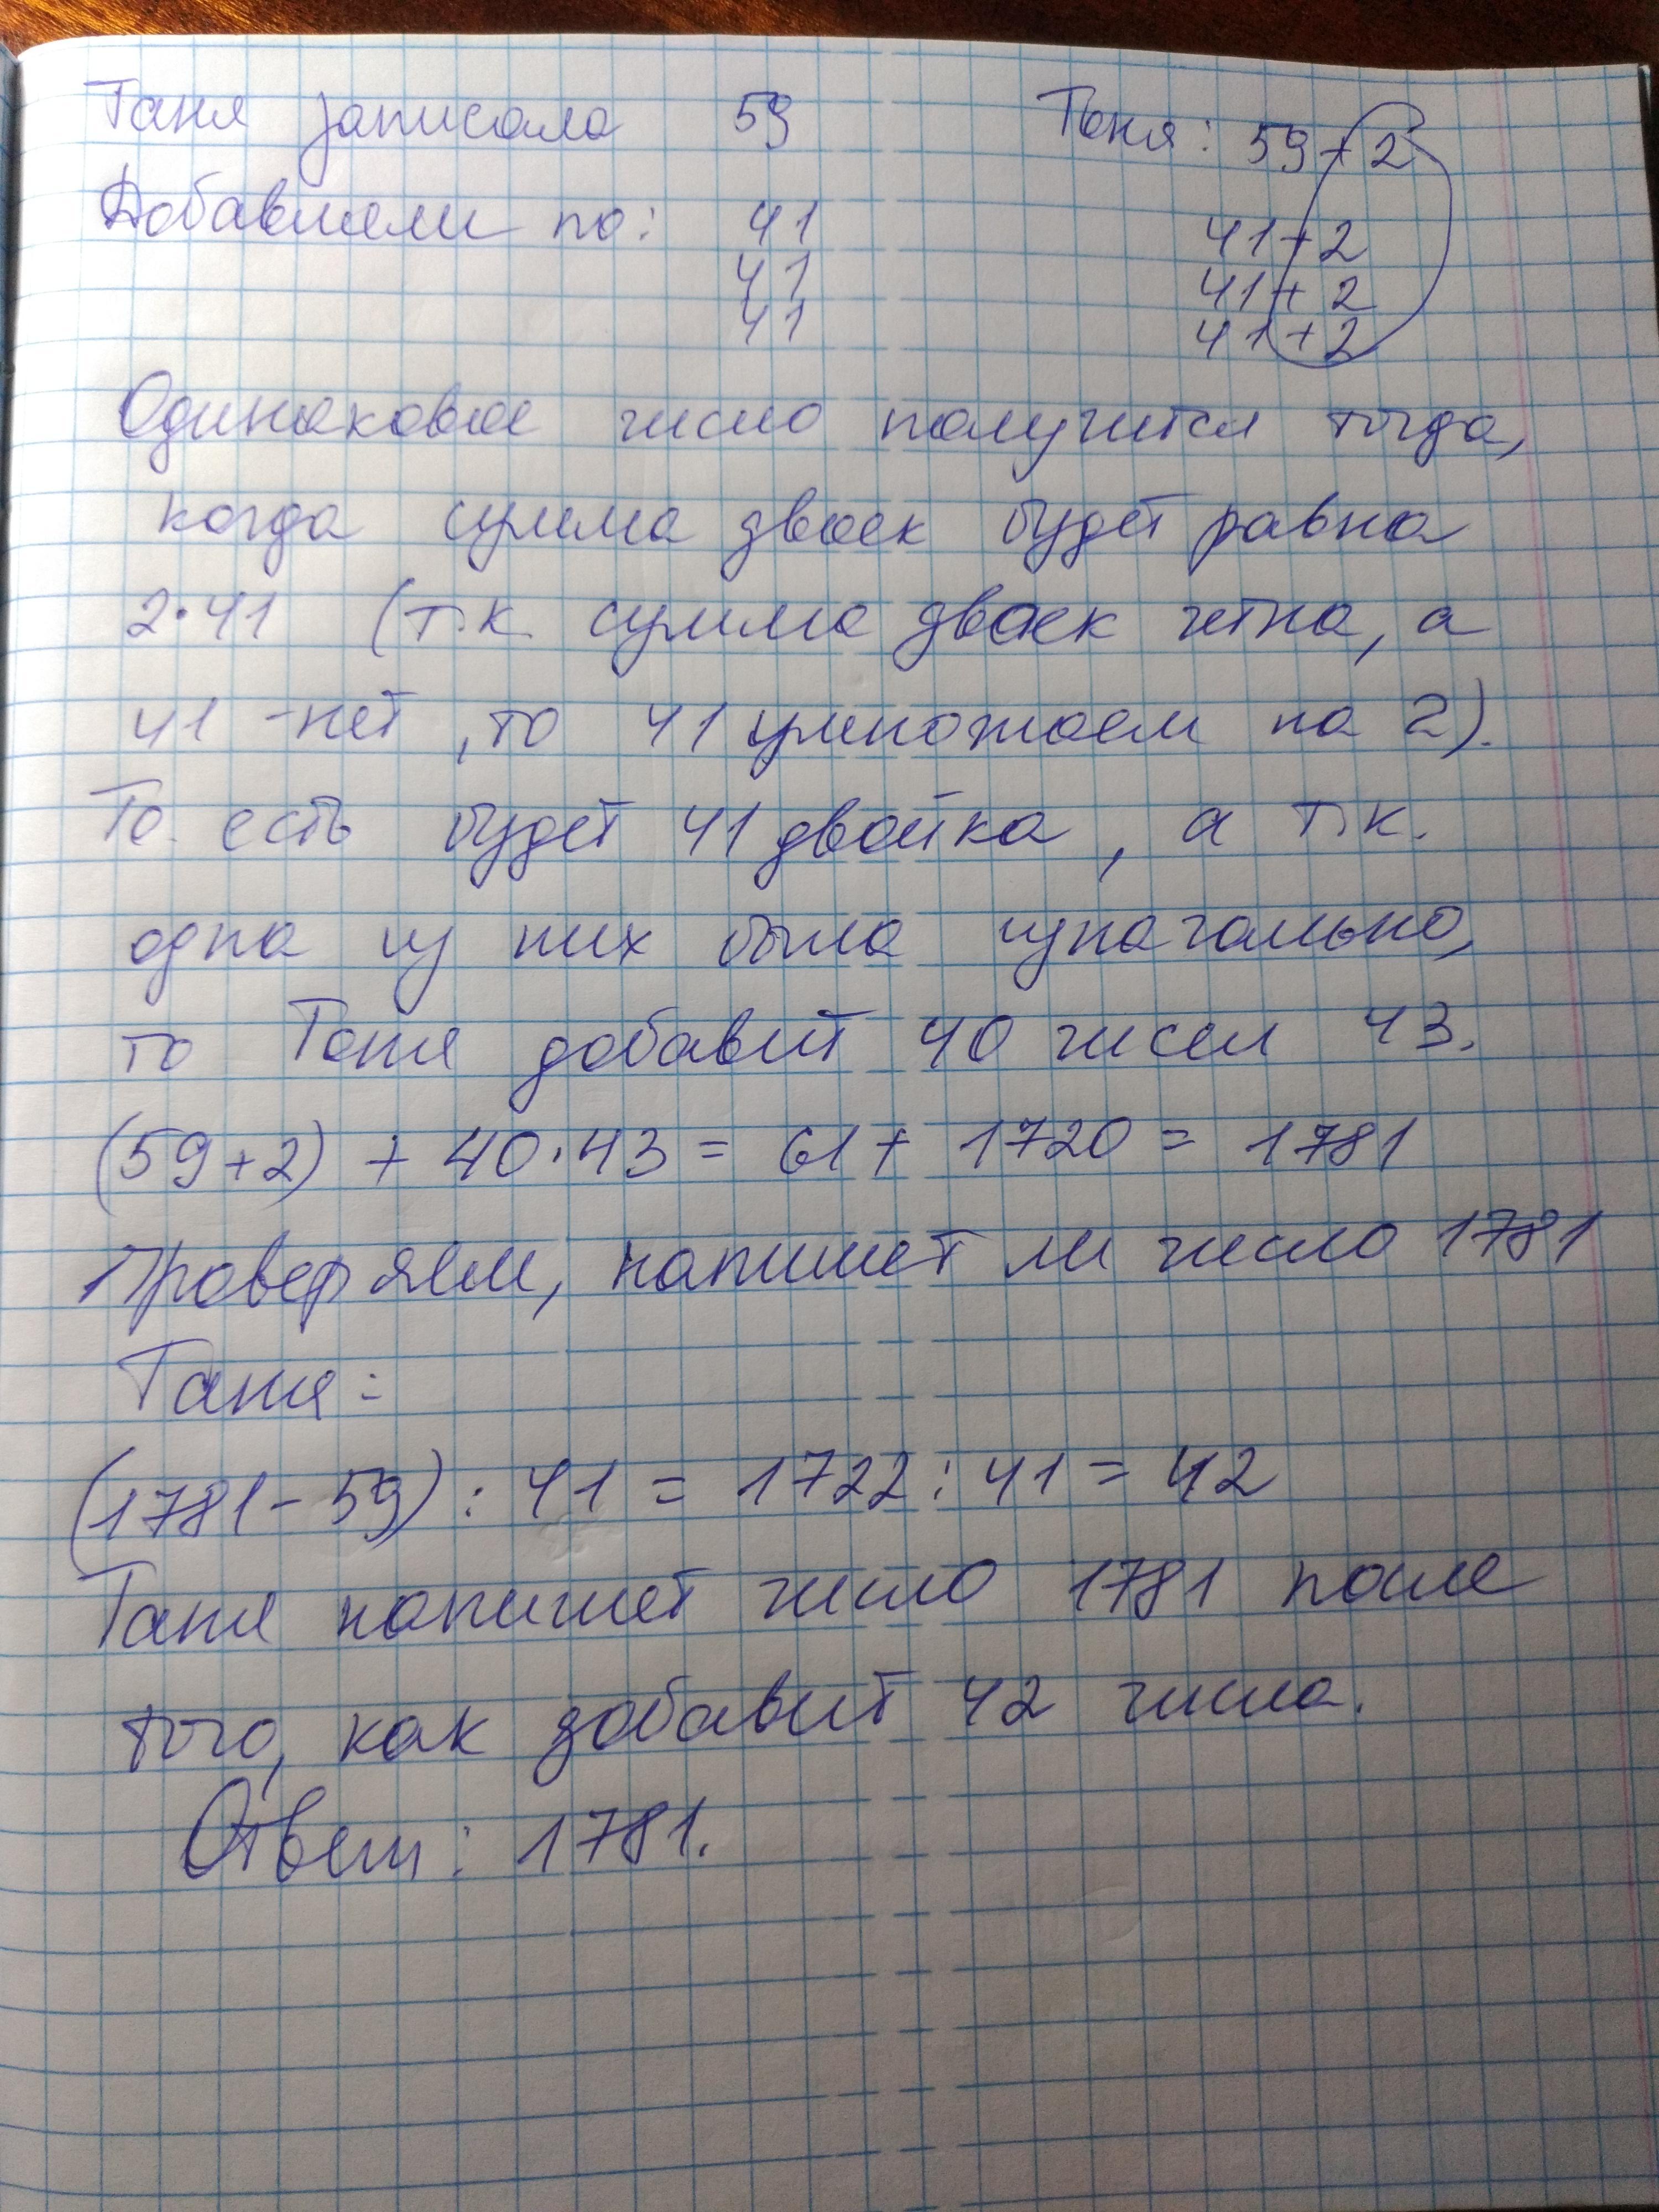 Таня записала 59 Тоня: 59+2
Добавляем по: 41 41+2
41 41+2
41 41+2
Одинаковое число получится тогда,
когда сумма двоек будет равна
2·41 (т.к. сумма двоек четна, а
41 - нет, то 41 умножаем на 2).
То есть будет 41 двойка, а т.к.
одна из них была изначально,
то Тоня добавит 40 чисел 43.
(59+2) + 40·43 = 61 + 1720 = 1781
Проверяем, напишет ли число 1781
Таня:
(1781 - 59) : 41 = 1722 : 41 = 42
Таня напишет число 1781 после
того, как добавит 42 числа.
Ответ: 1781.